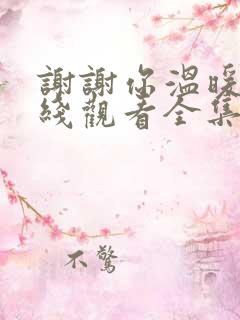 謝謝你溫暖
綫觀看全集
不驚